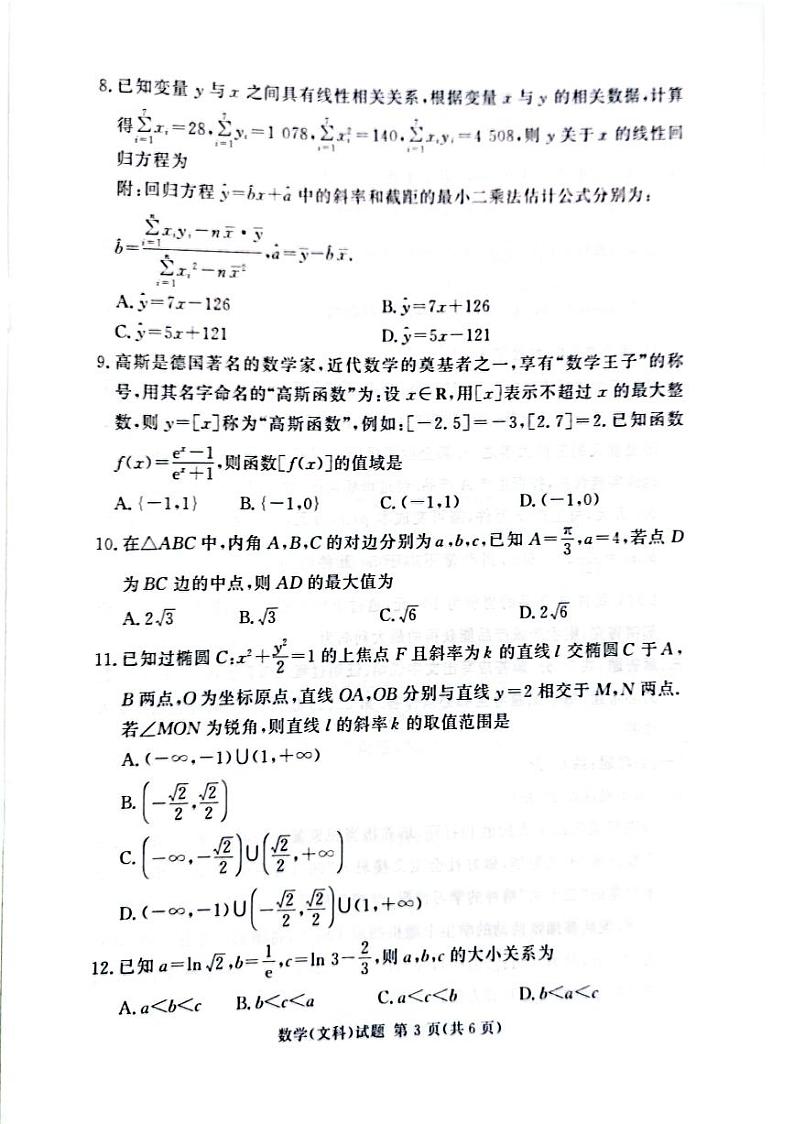 8. 已知变量 y 与 x 之间具有线性相关关系,根据变量 x 与 y 的相关数据,计算
得 \sum_{i=1}^{7} x_i=28, \sum_{i=1}^{7} y_i=1 078, \sum_{i=1}^{7} x_i^2=140, \sum_{i=1}^{7} x_i y_i=4 508,则 y 关于 x 的线性回
归方程为
附:回归方程 \hat{y}=\hat{b}x+\hat{a} 中的斜率和截距的最小二乘法估计公式分别为:
\hat{b}=\frac{\sum_{i=1}^{n} x_i y_i-n\bar{x}·\bar{y}}{\sum_{i=1}^{n} x_i^2-n\bar{x}^2},\hat{a}=\bar{y}-\hat{b}\bar{x}.
A. \hat{y}=7x-126 B. \hat{y}=7x+126
C. \hat{y}=5x+121 D. \hat{y}=5x-121
9. 高斯是德国著名的数学家,近代数学的奠基者之一,享有“数学王子”的称
号,用其名字命名的“高斯函数”为:设 x∈R,用[x]表示不超过 x 的最大整
数,则 y=[x]称为“高斯函数”,例如:[-2.5]=-3,[2.7]=2. 已知函数
f(x)=\frac{e^x-1}{e^x+1},则函数[f(x)]的值域是
A. {-1,1} B. {-1,0} C. (-1,1) D. (-1,0)
10. 在△ABC 中,内角 A,B,C 的对边分别为 a,b,c,已知 A=\frac{π}{3},a=4,若点 D
为 BC 边的中点,则 AD 的最大值为
A. 2\sqrt{3} B. \sqrt{3} C. \sqrt{6} D. 2\sqrt{6}
11. 已知过椭圆 C:x^2+\frac{y^2}{2}=1 的上焦点 F 且斜率为 k 的直线 l 交椭圆 C 于 A,
B 两点,O 为坐标原点,直线 OA,OB 分别与直线 y=2 相交于 M,N 两点.
若∠MON 为锐角,则直线 l 的斜率 k 的取值范围是
A. (-∞,-1)∪(1,+∞)
B. (-\frac{\sqrt{2}}{2},\frac{\sqrt{2}}{2})
C. (-∞,-\frac{\sqrt{2}}{2})∪(\frac{\sqrt{2}}{2},+∞)
D. (-∞,-1)∪(-\frac{\sqrt{2}}{2},\frac{\sqrt{2}}{2})∪(1,+∞)
12. 已知 a=ln \sqrt{2},b=\frac{1}{e},c=ln 3-\frac{2}{3},则 a,b,c 的大小关系为
A. a<b<c B. b<c<a C. a<c<b D. b<a<c
数学(文科)试题 第 3 页(共 6 页)